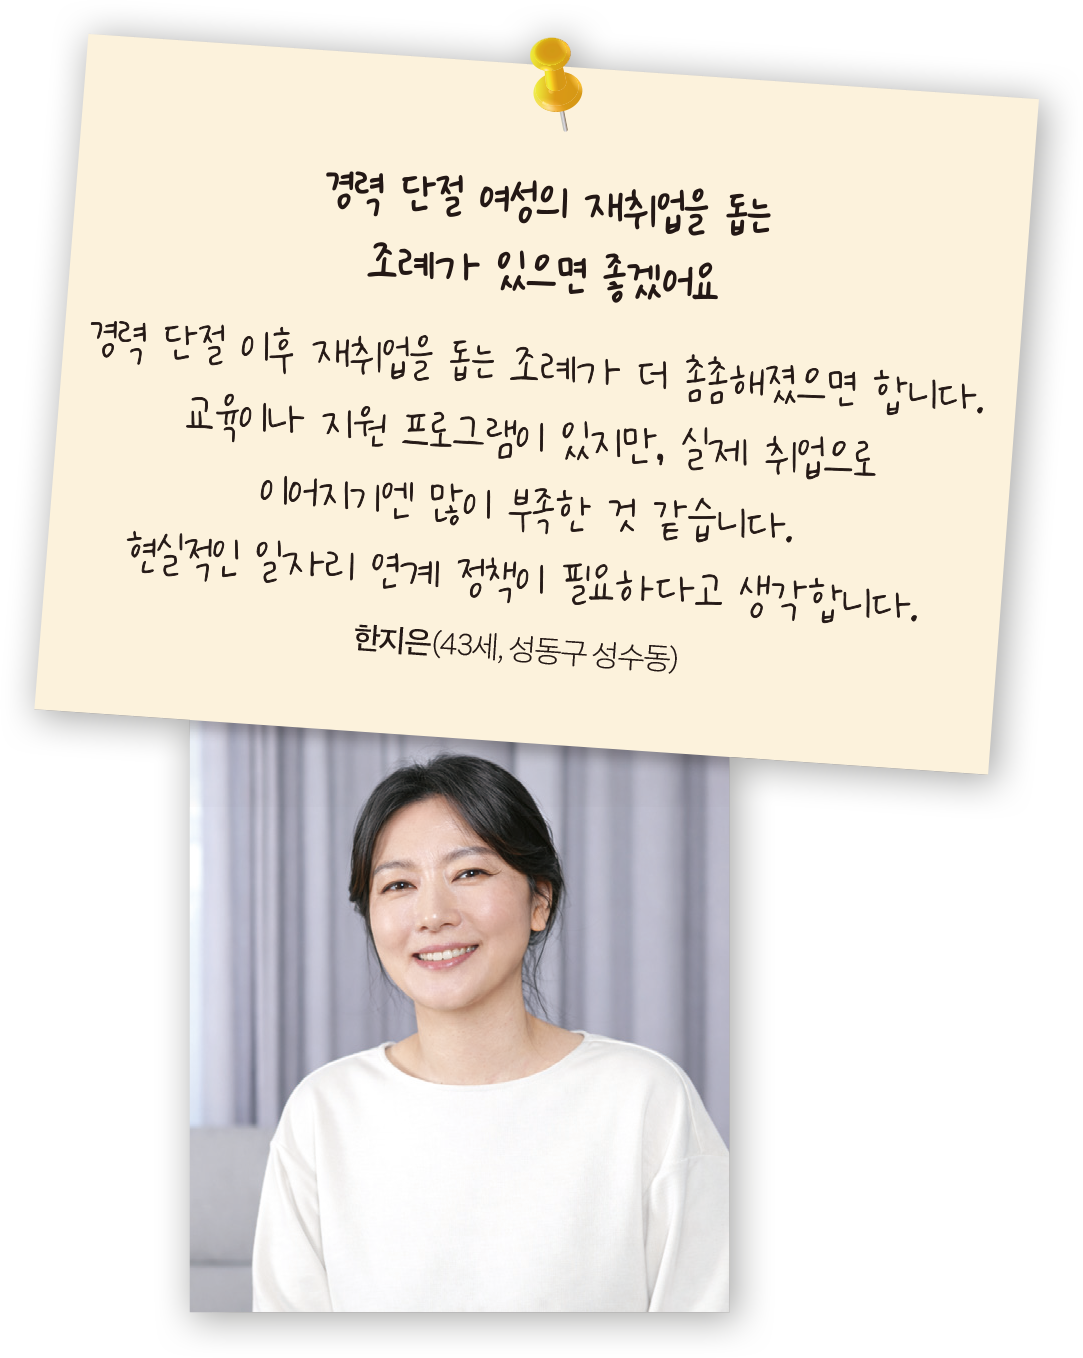 경력 단절 여성의 재취업을 돕는
조례가 있으면 좋겠어요
경력 단절 이후 재취업을 돕는 조례가 더 촘촘해졌으면 합니다.
교육이나 지원 프로그램이 있지만, 실제 취업으로
이어지기엔 많이 부족한 것 같습니다.
현실적인 일자리 연계 정책이 필요하다고 생각합니다.
한지은(43세, 성동구 성수동)